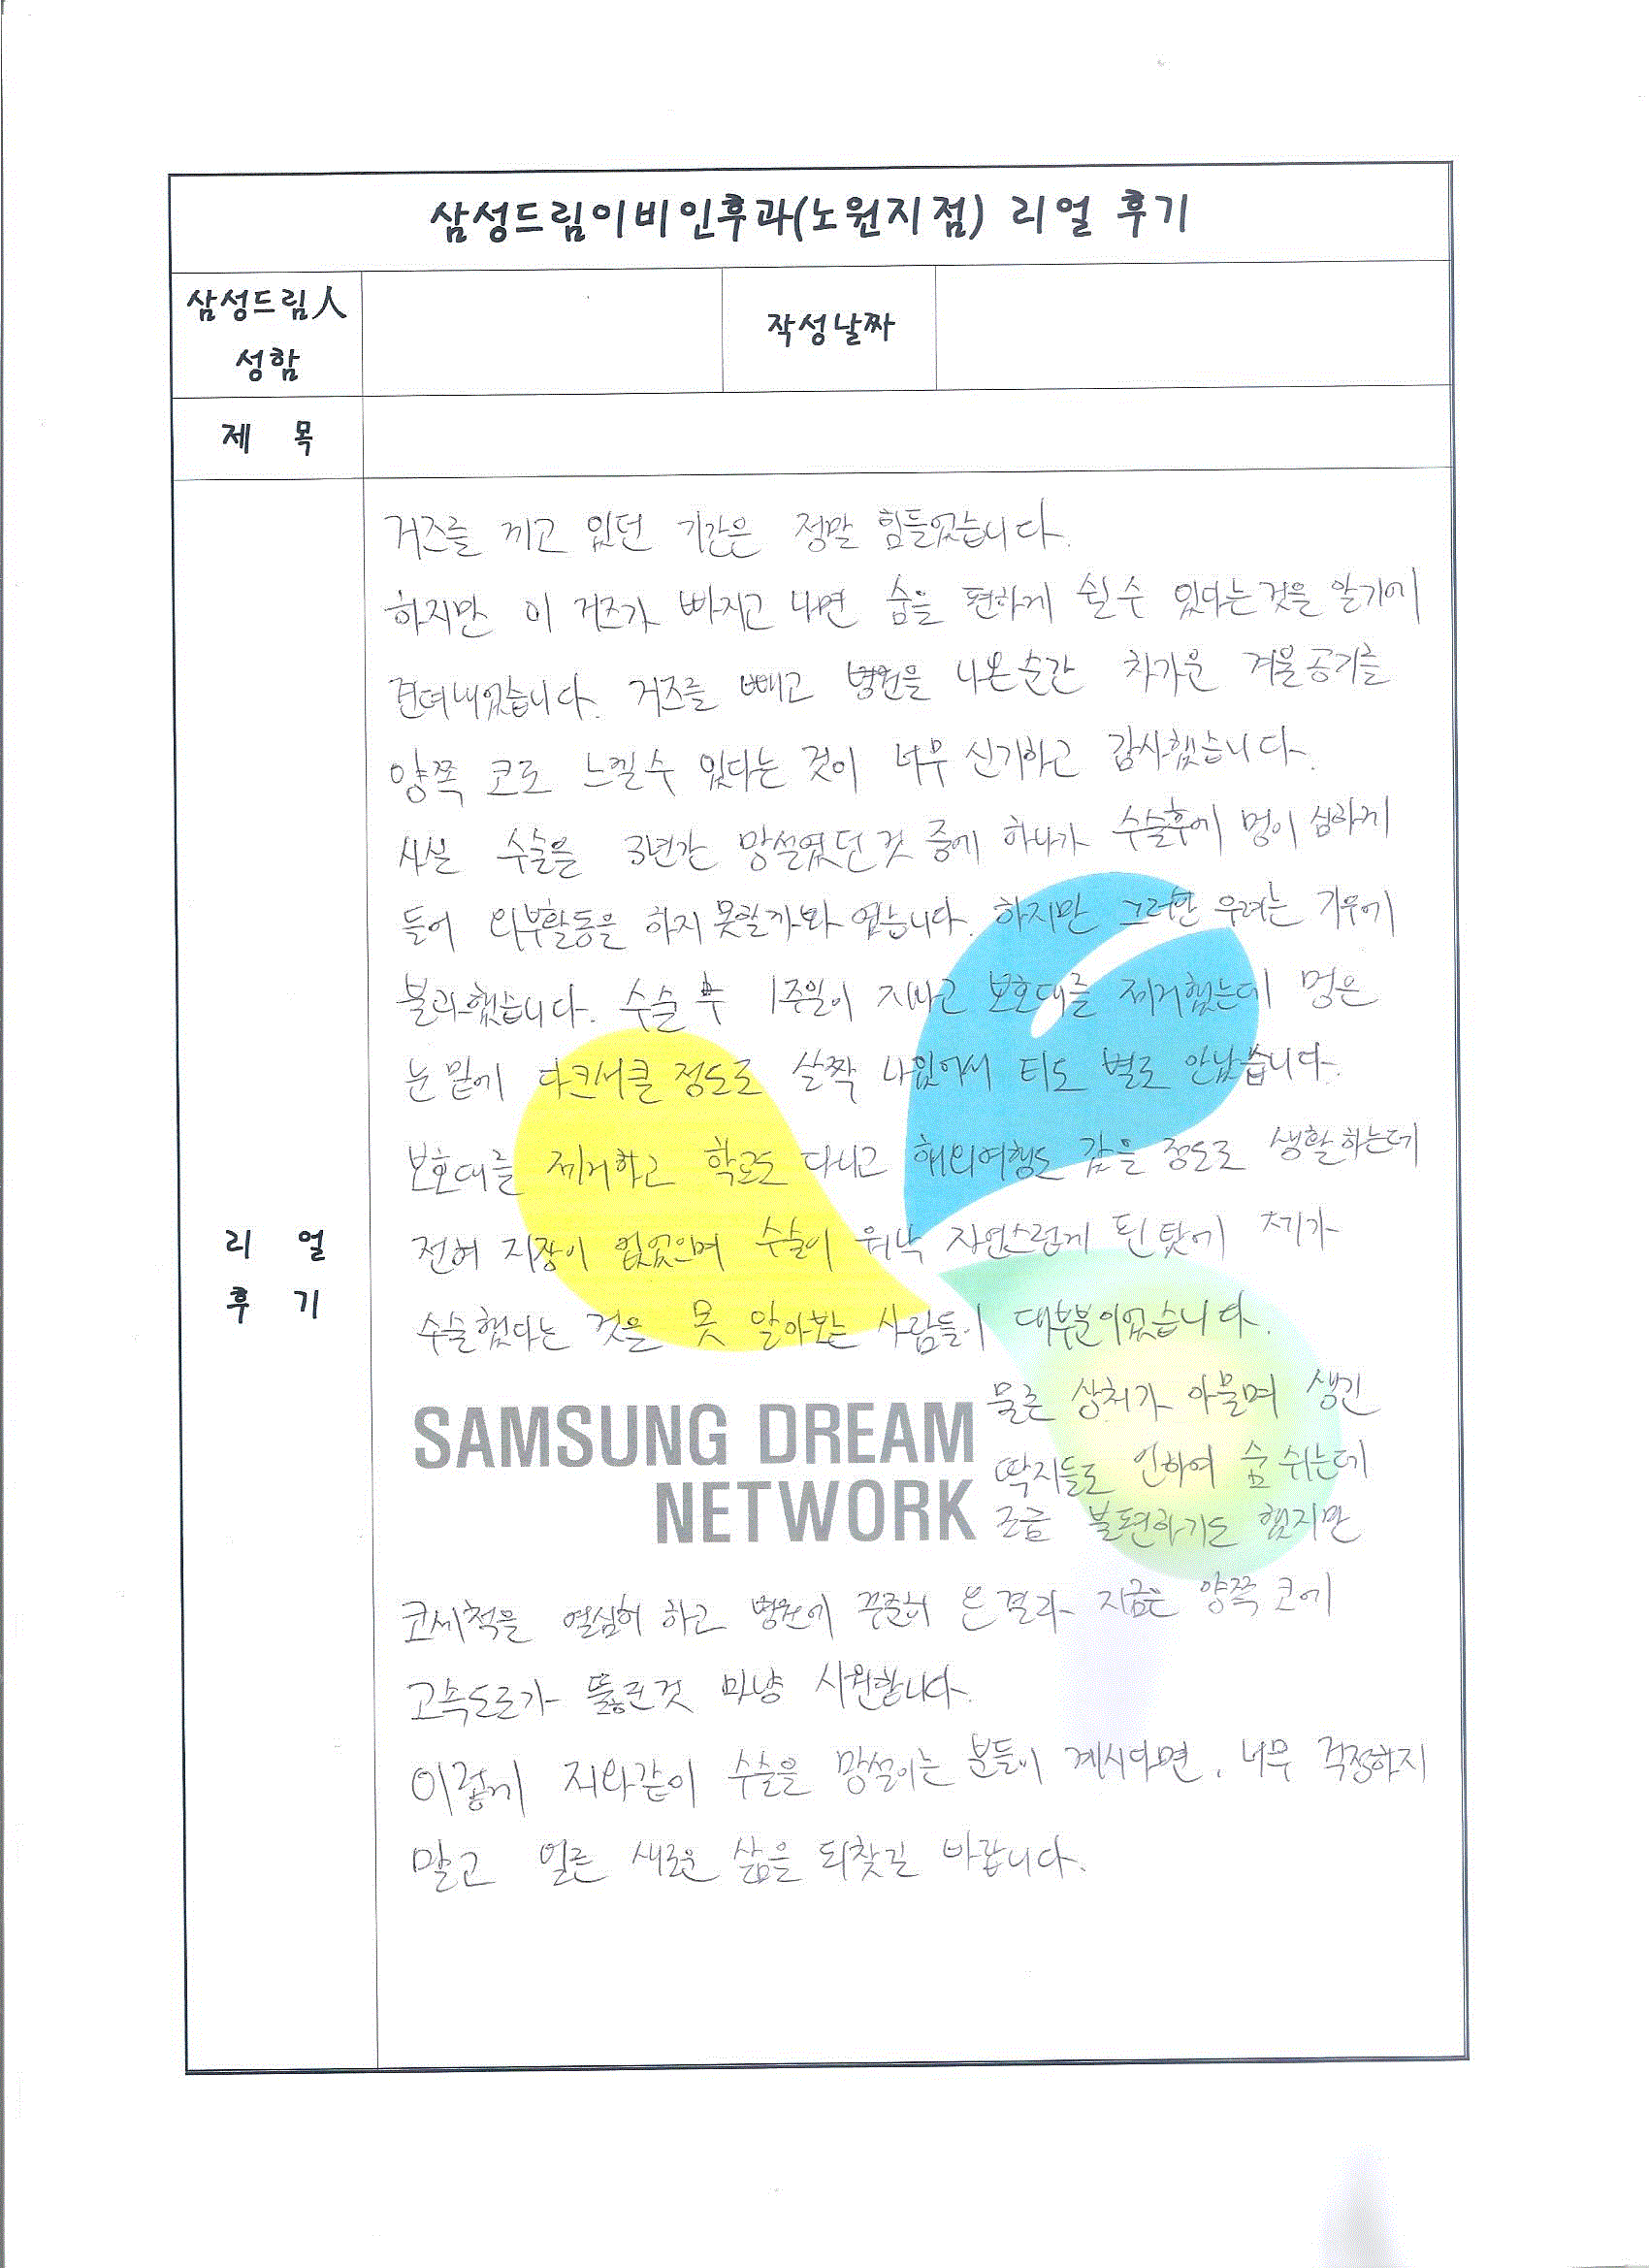 삼성드림이비인후과(노원지점) 리얼 후기
삼성드림人
성함
작성날짜
제 목
리 얼
후 기
거즈를 끼고 있던 기간은 정말 힘들었습니다.
하지만 이 거즈가 빠지고 나면 숨을 편하게 쉴수 있다는것을 알기에
견뎌내었습니다. 거즈를 빼고 병원을 나온순간 차가운 겨울공기를
양쪽 코로 느낄수 있다는 것이 너무 신기하고 감사했습니다.
사실 수술을 3년간 망설였던것 중에 하나가 수술후에 멍이 심하게
들어 외부활동을 하지 못할까봐 였습니다. 하지만 그러한 우려는 기우에
불과했습니다. 수술 후 1주일이 지나고 보호대를 제거했는데 멍은
눈 밑에 다크서클 정도로 살짝 나있어서 티도 별로 안났습니다.
보호대를 제거하고 학교도 다니고 해외여행도 갔을 정도로 생활하는데
전혀 지장이 없었으며 수술이 워낙 자연스럽게 된 탓에 제가
수술했다는 것을 못 알아보는 사람들이 대부분이었습니다.
물론 상처가 아물며 생긴
딱지들로 인하여 숨 쉬는데
조금 불편하기도 했지만
SAMSUNG DREAM
NETWORK
코세척을 열심히 하고 병원에 꾸준히 온결과 지금은 양쪽 코에
고속도로가 뚫린것 마냥 시원합니다.
이렇게 저와같이 수술을 망설이는 분들이 계시다면, 너무 걱정하지
말고 얼른 새로운 삶을 되찾길 바랍니다.